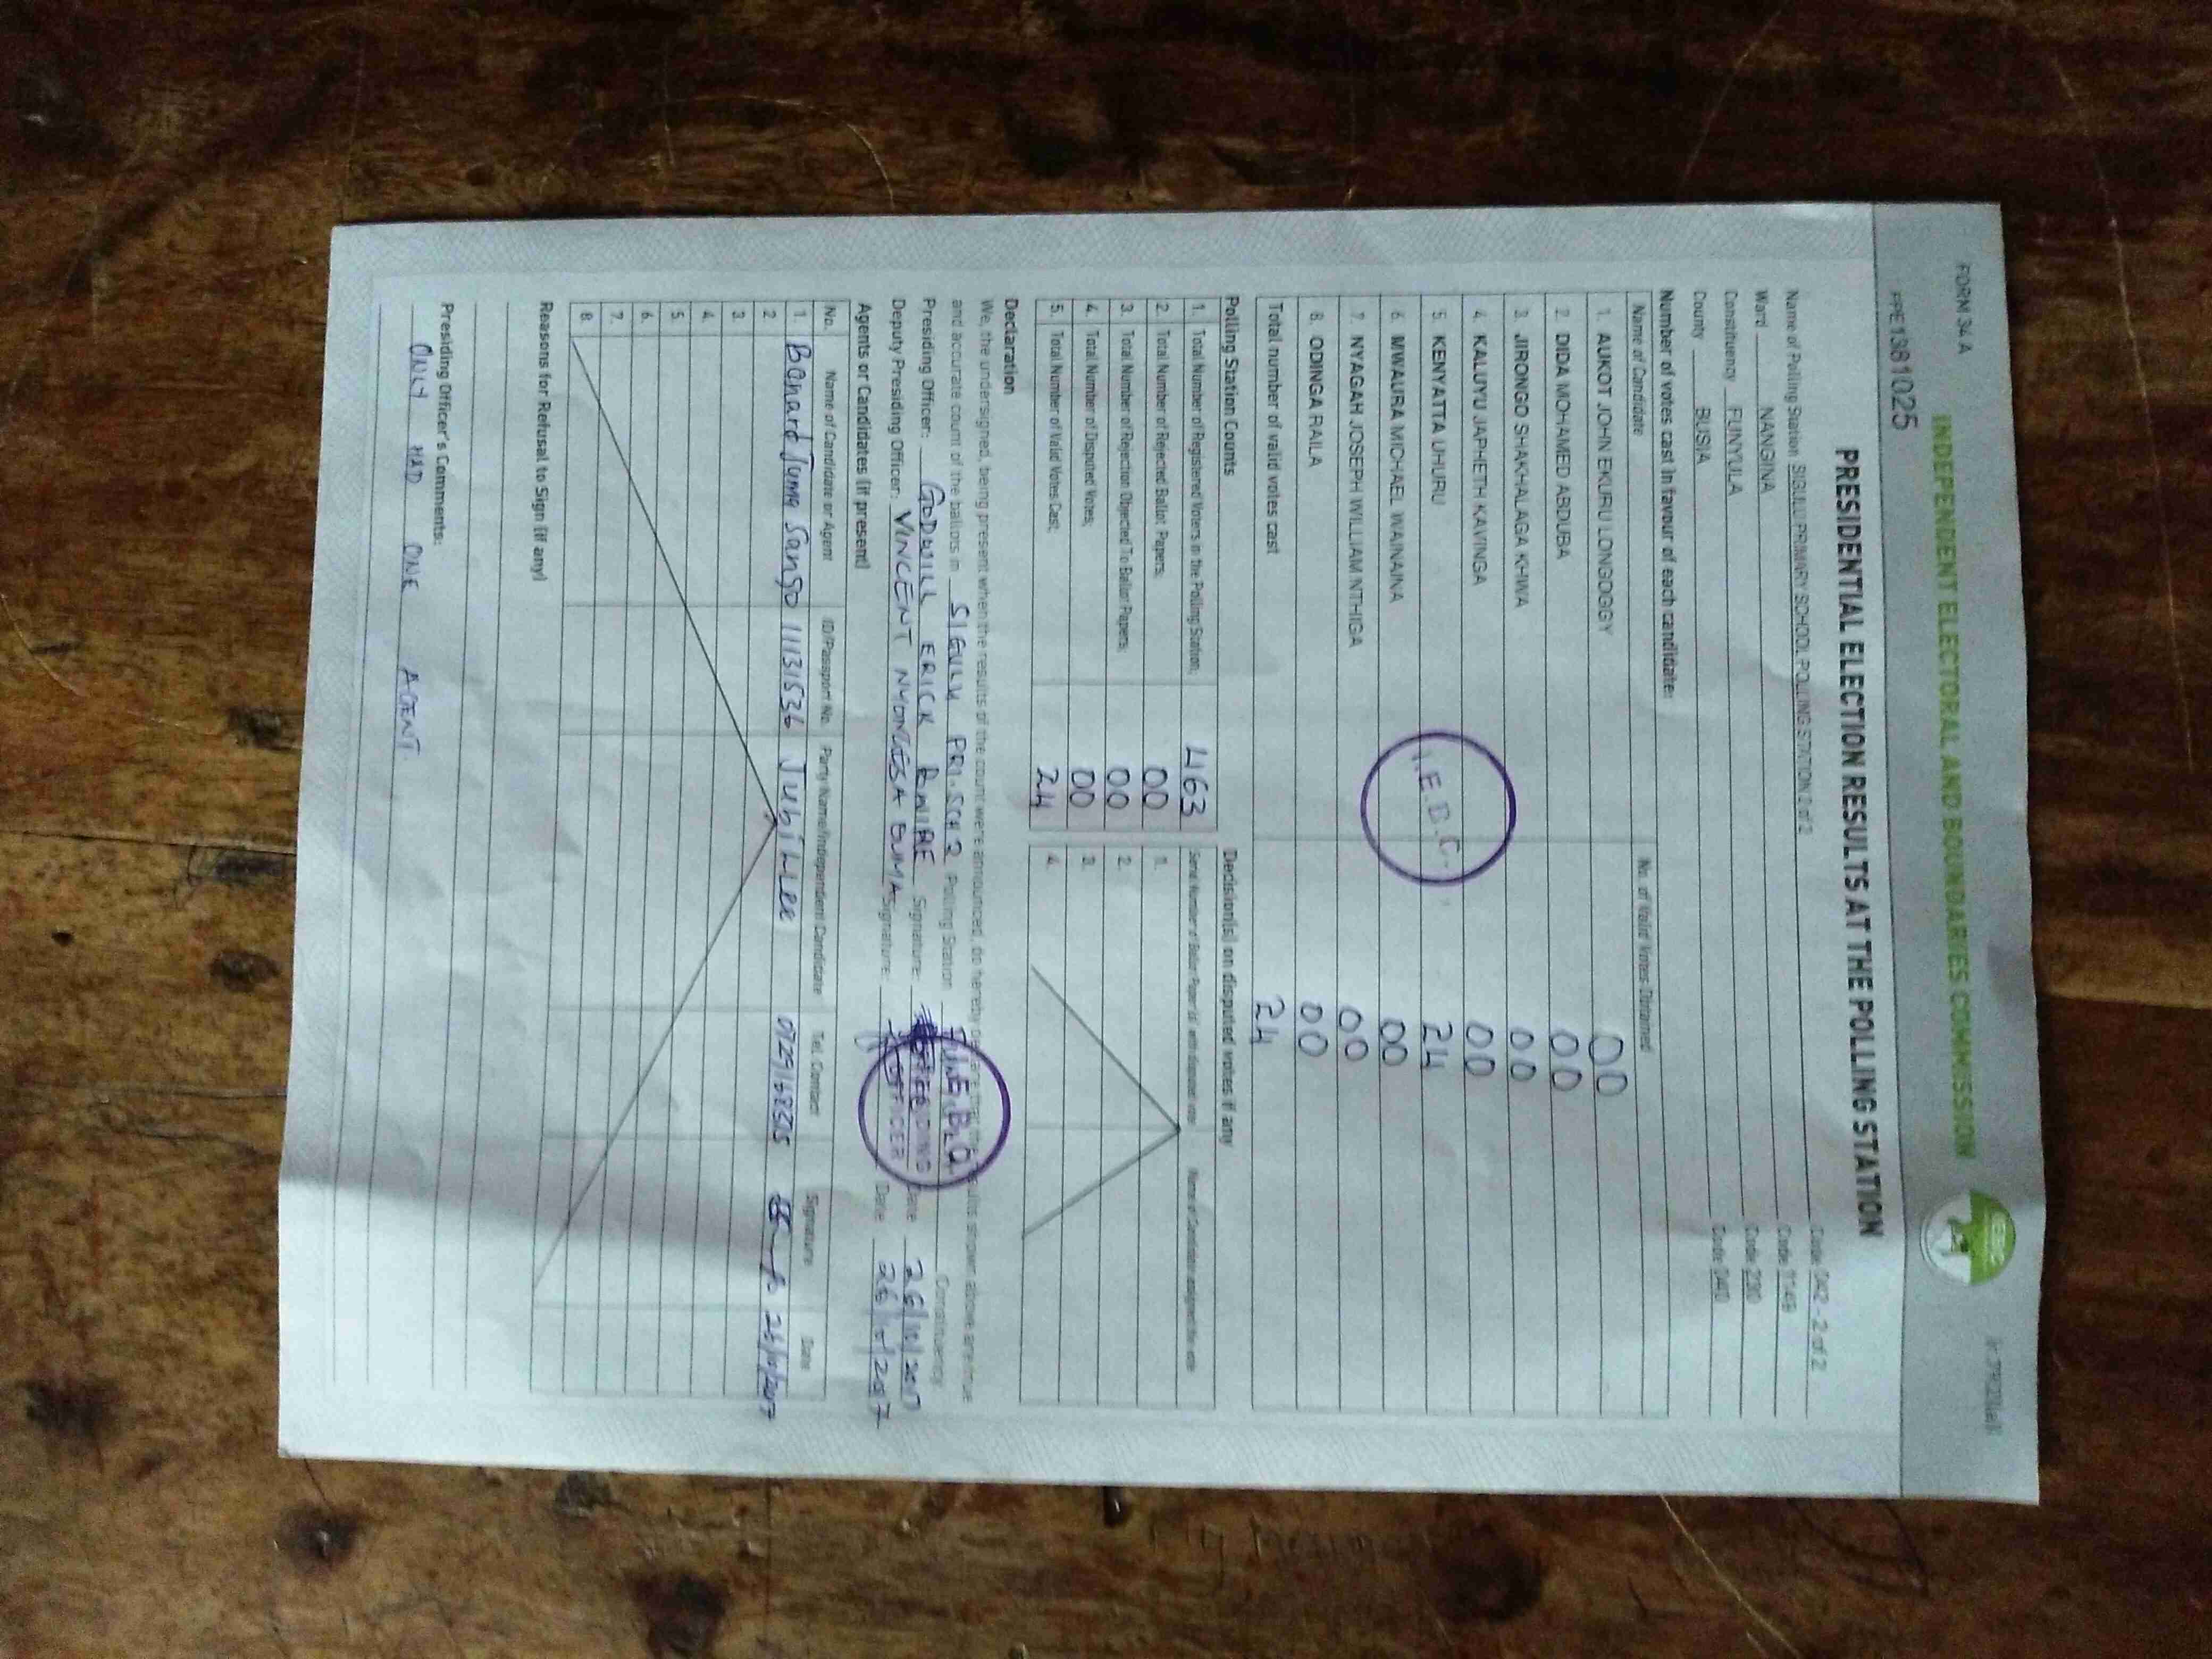 FORM 34 A
INDEPENDENT ELECTORAL AND BOUNDARIES COMMISSION
IEBC
PPE1381025
PRESIDENTIAL ELECTION RESULTS AT THE POLLING STATION
Name of Polling Station SIGULU PRIMARY SCHOOL POLLING STATION 2 of 2 Code 042 - 2 of 2
Ward NANGINA Code
Constituency FUNYULA Code
County BUSIA Code 040
Number of votes cast in favour of each candidate:
Name of Candidate No. of Valid Votes Obtained
1. AUKOT JOHN EKURU LONGOGGY 00
2. DIDA MOHAMED ABDUBA 00
3. JIRONGO SHAKHALAGA KHWA 00
4. KALUYU JAPHETH KAVINGA 00
5. KENYATTA UHURU 24
6. MWAURA MICHAEL WAINAINA 00
7. NYAGAH JOSEPH WILLIAM NTHIGA 00
8. ODINGA RAILA 00
Total number of valid votes cast 24
I.E.B.C.
Polling Station Counts
1. Total Number of Registered Voters in the Polling Station; 463
2. Total Number of Rejected Ballot Papers; 00
3. Total Number of Rejection Objected To Ballot Papers; 00
4. Total Number of Disputed Votes; 00
5. Total Number of Valid Votes Cast; 24
Decision(s) on disputed votes if any
Serial Number of Ballot Paper (s) with disputed vote Name of Candidate assigned the vote
1.
2.
3.
4.
Declaration
We, the undersigned, being present when the results of the count were announced, do hereby declare that the results shown above are true
and accurate count of the ballots in SIGULU PRI. SCH 2 Polling Station Constituency
Presiding Officer: GODWILL ERICK Signature: Date 26/10/2017
Deputy Presiding Officer: VINCENT Signature: Date 26/10/2017
I.E.B.C.
PRESIDING
OFFICER
Agents or Candidates (if present)
No. Name of Candidate or Agent ID/Passport No. Party Name/Independent Candidate Tel. Contact Signature Date
1. Benard Juma Sango 11131536 JubiLee 26/10/2017
2.
3.
4.
5.
6.
7.
8.
Reasons for Refusal to Sign (if any)
Presiding Officer's Comments:
ONLY HAD ONE AGENT